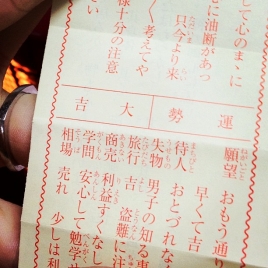 して心のまゝに
に油断があつ
只今より来
く考えてや
様十分の注意
さい
運勢
大吉
願望 おもう通り
早くて吉
待人 おとづれな
失物 男子の知る事
旅行 吉 盗難に注
商売 利益すくなし
学問 安心して勉学せ
相場 売れ 少しは利